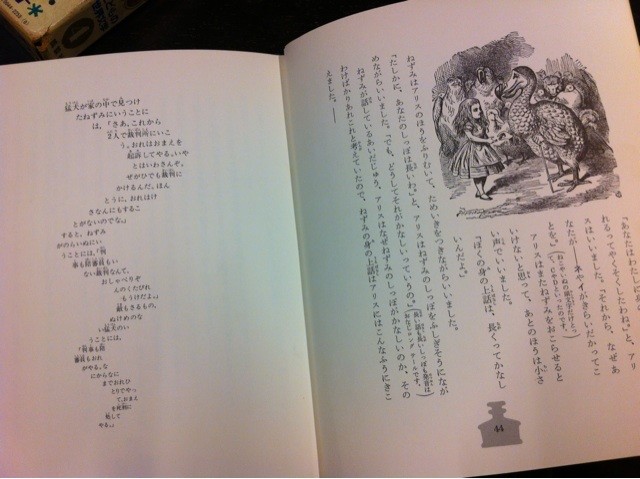 「あなたはわたしに
れるってやくそくしたわね。」と、アリ
スはいいました。「それから、なぜあ
なたが――ネやイがきらいだかってこ
とを。」
アリスはまたねずみをおこらせると
いけないと思って、あとのほうは小さ
い声でいいました。
「ぼくの身の上話は、長くってかなし
いんだよ。」
ねずみはアリスのほうをふりむいて、ためいきをつきながらいいました。
「たしかに、あなたのしっぽは長いわ。」と、アリスはねずみのしっぽをふしぎそうになが
めながらいいました。「でも、どうしてそれがかなしいっていうの。」
ねずみが話しているあいだじゅう、アリスはなぜねずみのしっぽがかなしいのか、その
わけばかりあれこれと考えていたので、ねずみの身の上話はアリスにはこんなふうにきこ
えました。――
44
猛犬が家の中で見つけ
たねずみにいうことに
は、「さあ、これから
2人で裁判所にいこ
う。おれはおまえを
起訴してやる。いや
とはいわさんぞ。
ぜがひでも裁判に
かけるんだ。ほん
とうに、おれはけ
さなんにもするこ
とがないのでな。」
すると、ねずみ
がのらいぬにい
うことには、「判
事も陪審員もい
ない裁判なんて、
おしゃべりぞ
んのくたびれ
もうけだよ。」
敵もさるもの、
ぬけめのな
い猛犬のい
うことには、
「判事も陪
審員もおれ
がやる。な
にからなに
までおれひ
とりでやっ
て、おまえ
を死刑に
処して
やる。」